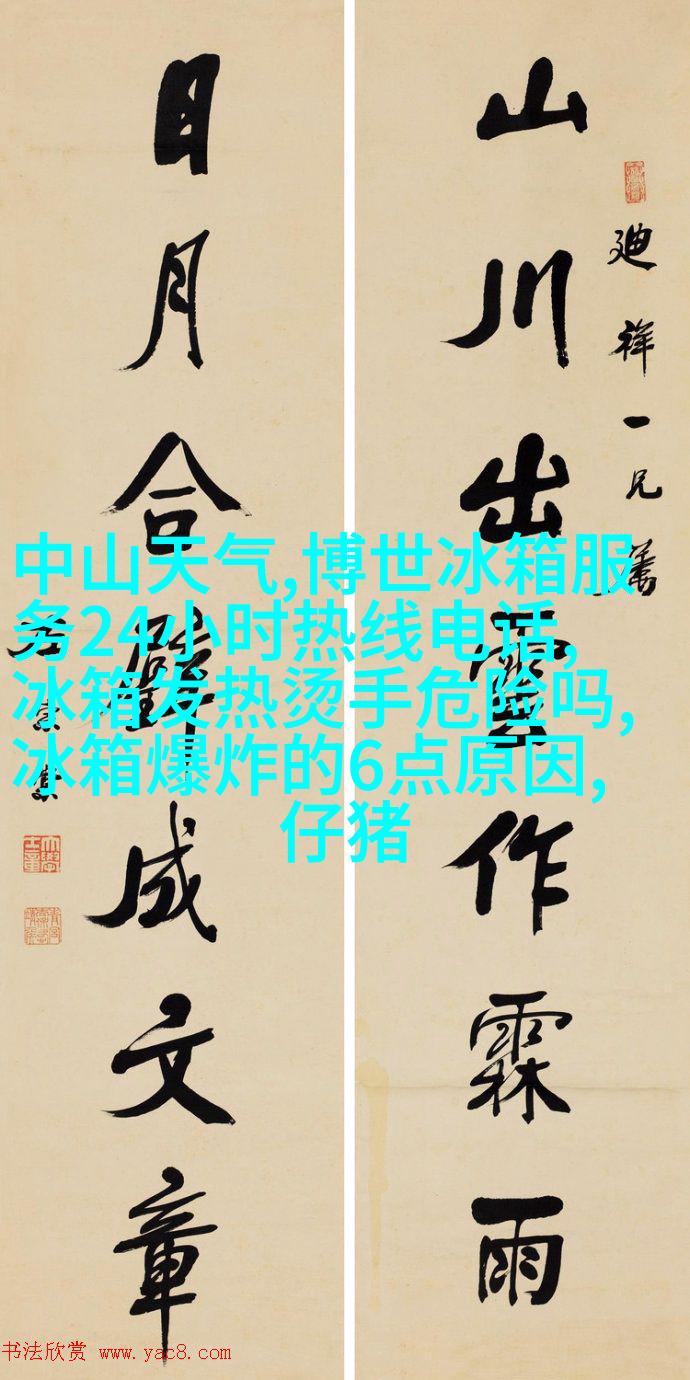 山川出雲作霖雨
廸祥一兄鑒
日月合璧成文章
中山天气,博世冰箱服
务24小时热线电话,
冰箱发热烫手危险吗,
冰箱爆炸的6点原因,
仔猪
书法欣赏 www.yac8.com